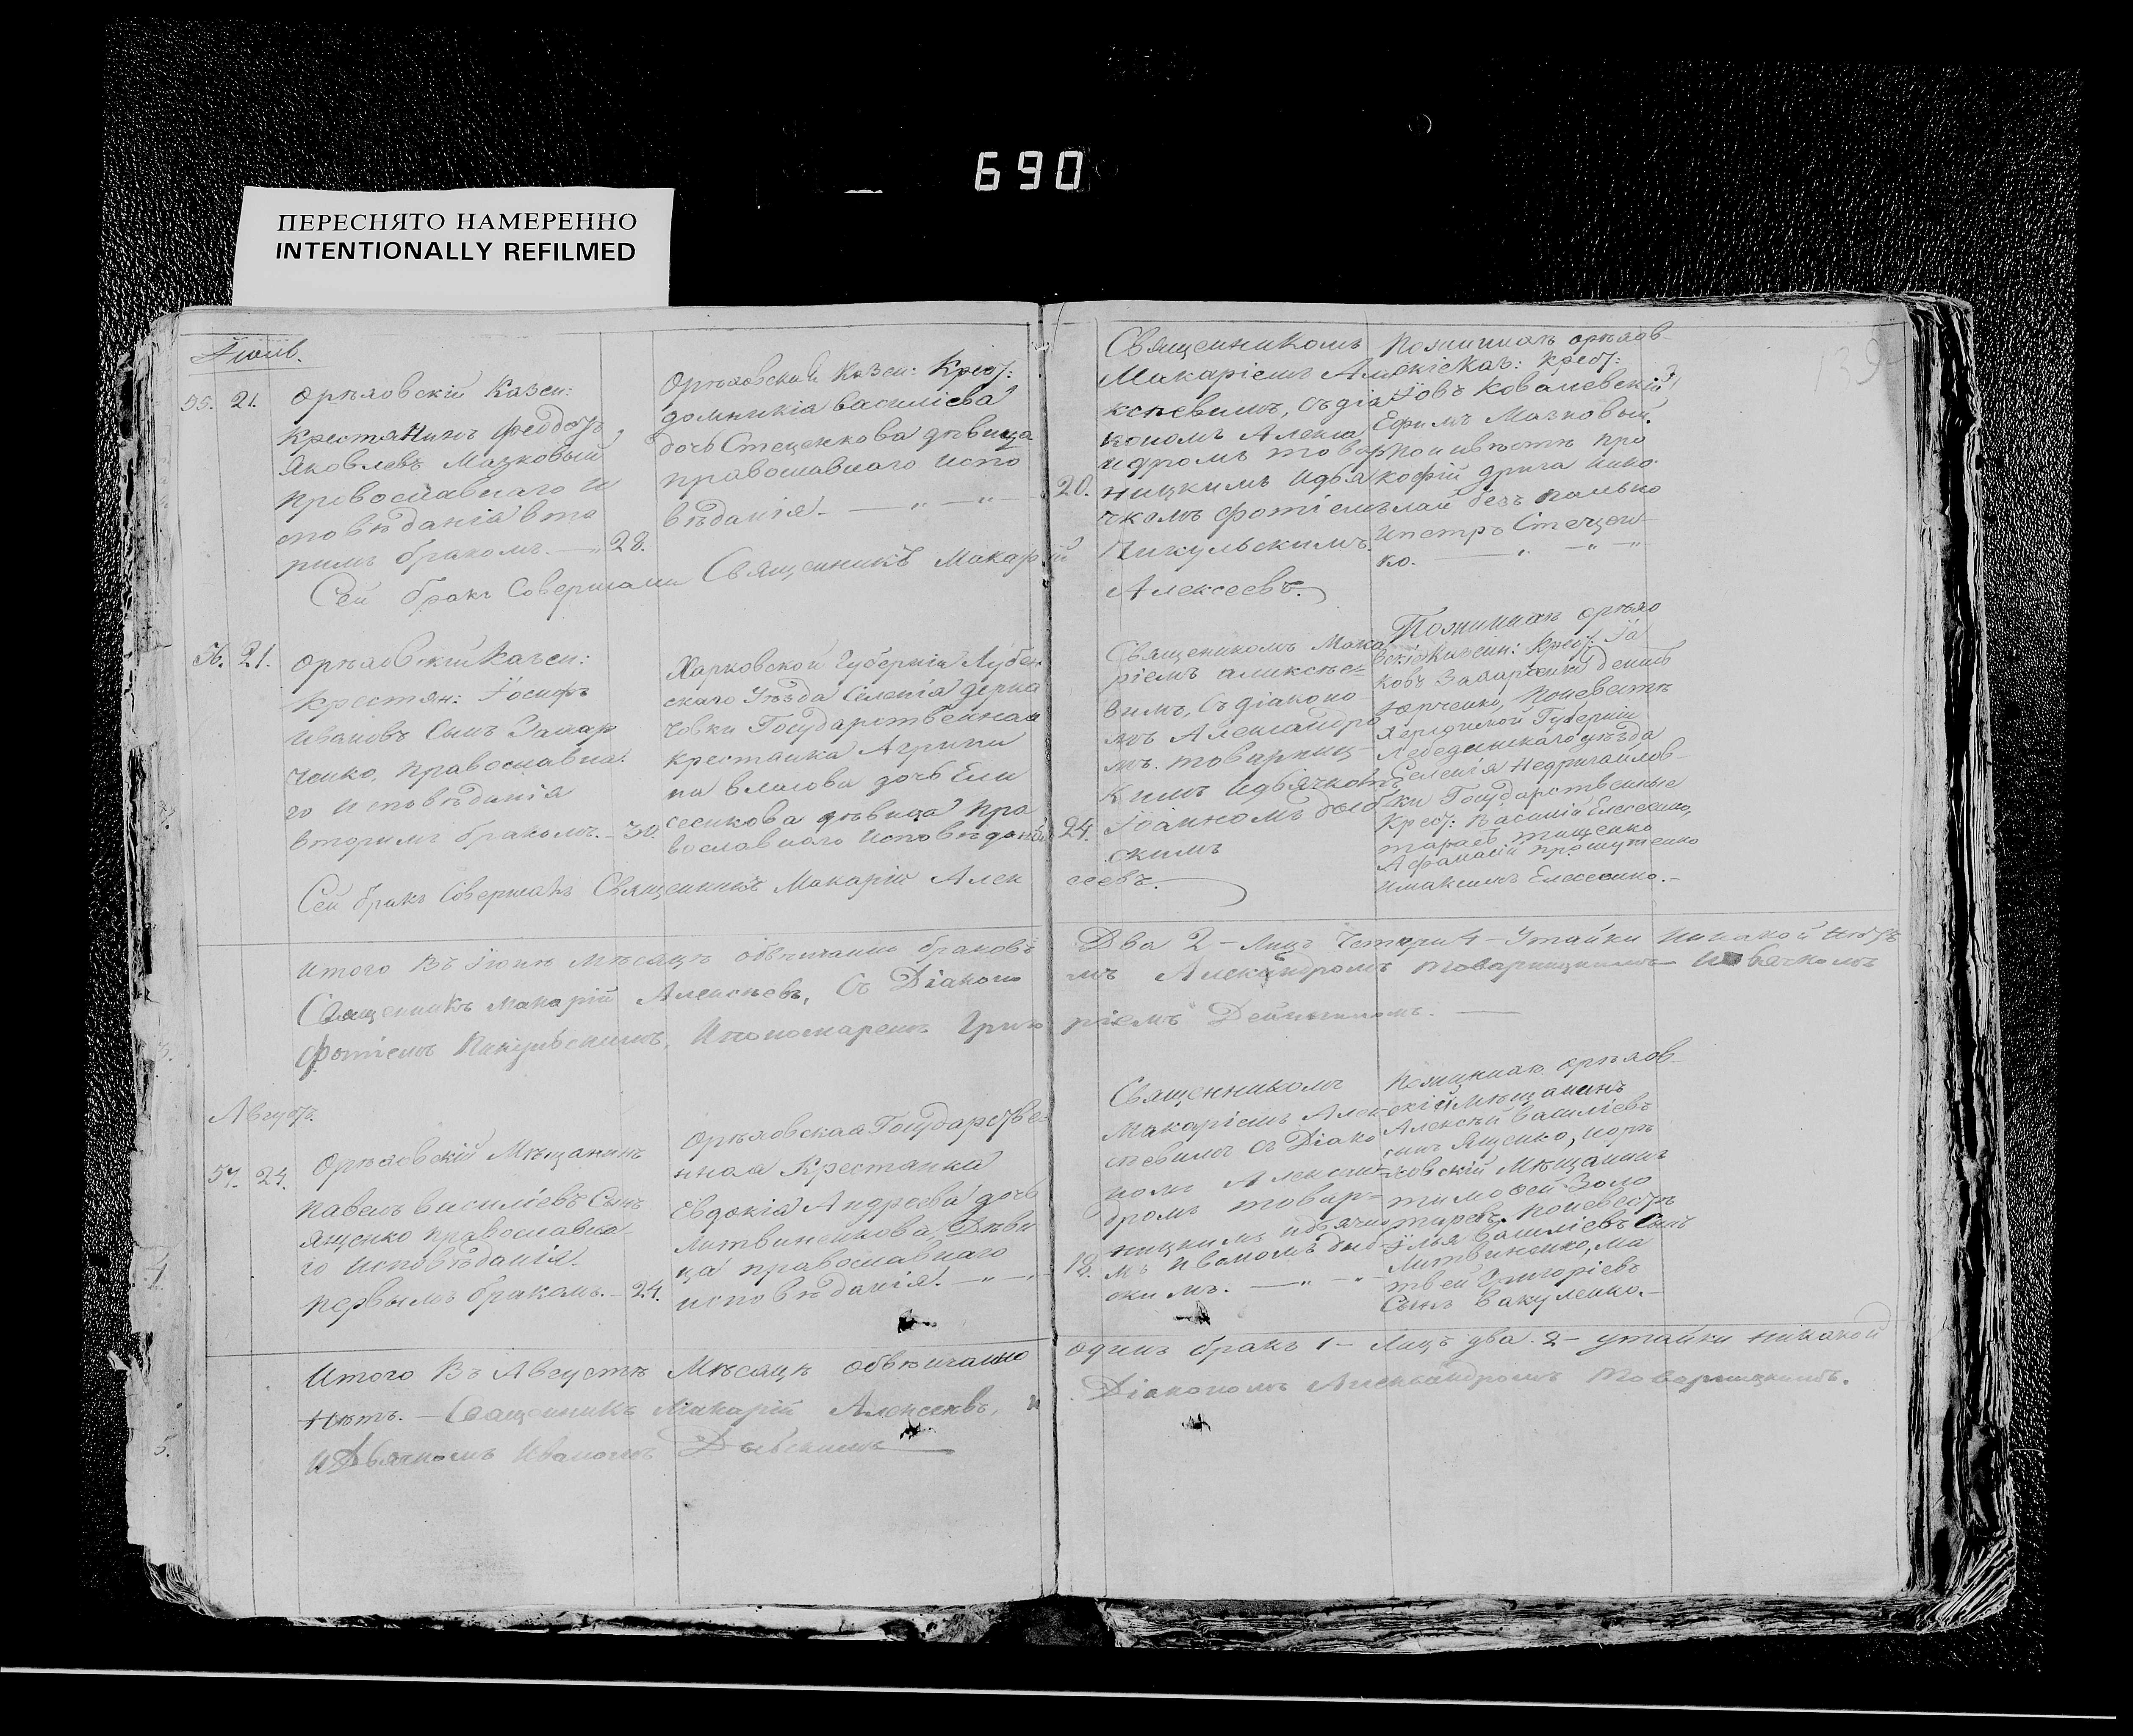 690
ПЕРЕСНЯТО НАМЕРЕННО
INTENTIONALLY REFILMED
139
55. 21.
Орѣховскій Казен:
Крестянинъ Феддотъ
Яковлевъ Мазковый
православнаго и
споведанія вто
римъ бракомъ. — 28.
Орѣховская Казен: Крест:
домникія василіева
дочь Стеценкова дѣвица
православнаго испо
вѣданія. — „ —
20.
Священникомъ
Макаріемъ Але
ксѣевимъ, съ діа
кономъ Алекса
ндромъ товар
ницкимъ идья
чкомъ фотіемъ
Пикульскимъ.
По жиниха орѣхов
скіе Каз: крест:
Іовъ Ковалевскій
Ефимъ Мазковый.
По невѣстѣ про
кофій друга нико
лай безъ палько
ипетръ Стецен
ко. — „ — „ —
Сей бракъ Совершали Священникъ Макарій
Алексеевъ.
56. 21.
Орѣховскій Казен:
Крестян: Іосифъ
Ивановъ Сынъ Захар
ченко, православна
го исповѣданія
вторимъ бракомъ. — 30.
Харковской Губерніи Лубен
скаго Уѣзда Селенія дерка
човки Государственная
крестянка Агрипи
на власова дочь Ели
сеенкова дѣвица пра
вославнаго исповѣданія
24.
Священикомъ Мака
ріемъ аликсѣе
вимъ, Съ діаконо
мъ Александро
мъ. товарниц
кимъ идьячкомъ
Іоанномъ дыб
скимъ
По жиниха орѣхо
вскіе Казен: Крест: Іа
ковъ Захарченко
Юрченко, По невестѣ
Губерніи
Лебединскаго уѣзда
Селенія Недригайлов
ки Государственные
Крест: Василій Елесеенко,
тарасъ тищенко
Афанасій
имаксимъ Елесеенко. —
Сей бракъ Совершалъ Священникъ Макарій Алек
сеевъ.
Итого Въ Іюнѣ Мѣсяцѣ обвѣнчанно браковъ Два 2 — Лицъ Четири 4 — Утайки Никакой Нѣтъ
Священикъ Макарій Алексѣевъ, Съ Діаконо мъ Александромъ товарницкимъ — И дьячкомъ
Фотіемъ Пикульскимъ, Ипономаремъ Григо ріемъ
Августъ.
57. 24.
Орѣховскій Мѣщанинъ
Павелъ василіевъ Сынъ
Ященко православна
го исповѣданія.
Первымъ бракомъ. — 24.
Орѣховская Государстве
нная Крестянка
Евдокія Андреева дочь
Литвиненкова, Дѣви
ца православнаго
исповѣданія. — „ — „ —
18.
Священникомъ
Макаріемъ Алек
сѣевимъ съ Діако
номъ Алексан
дромъ товар
ницкимъ идьячко
мъ Иваномъ дыб
скимъ. — „ — „
По жиниха орѣхов
скій Мѣщанинъ
Алексѣй василіевъ
сынъ Ященко, иорѣ
ховскій Мѣщанинъ
тимофей Золо
таревъ. По невестѣ
Илья василіевъ Сынъ
Литвиненко, Ма
твей Григоріевъ
Сынъ Вакуленко. —
Итого Въ Августѣ Мѣсяцѣ обвѣнчанно одинъ бракъ 1 — Лицъ два. 2 — утайки никакой
Нѣтъ. — Священникъ Макарій Алексѣевъ, Діакономъ Александромъ Товарницкимъ.
И Дьячкомъ Иваномъ Дыбскимъ —
4.
5.